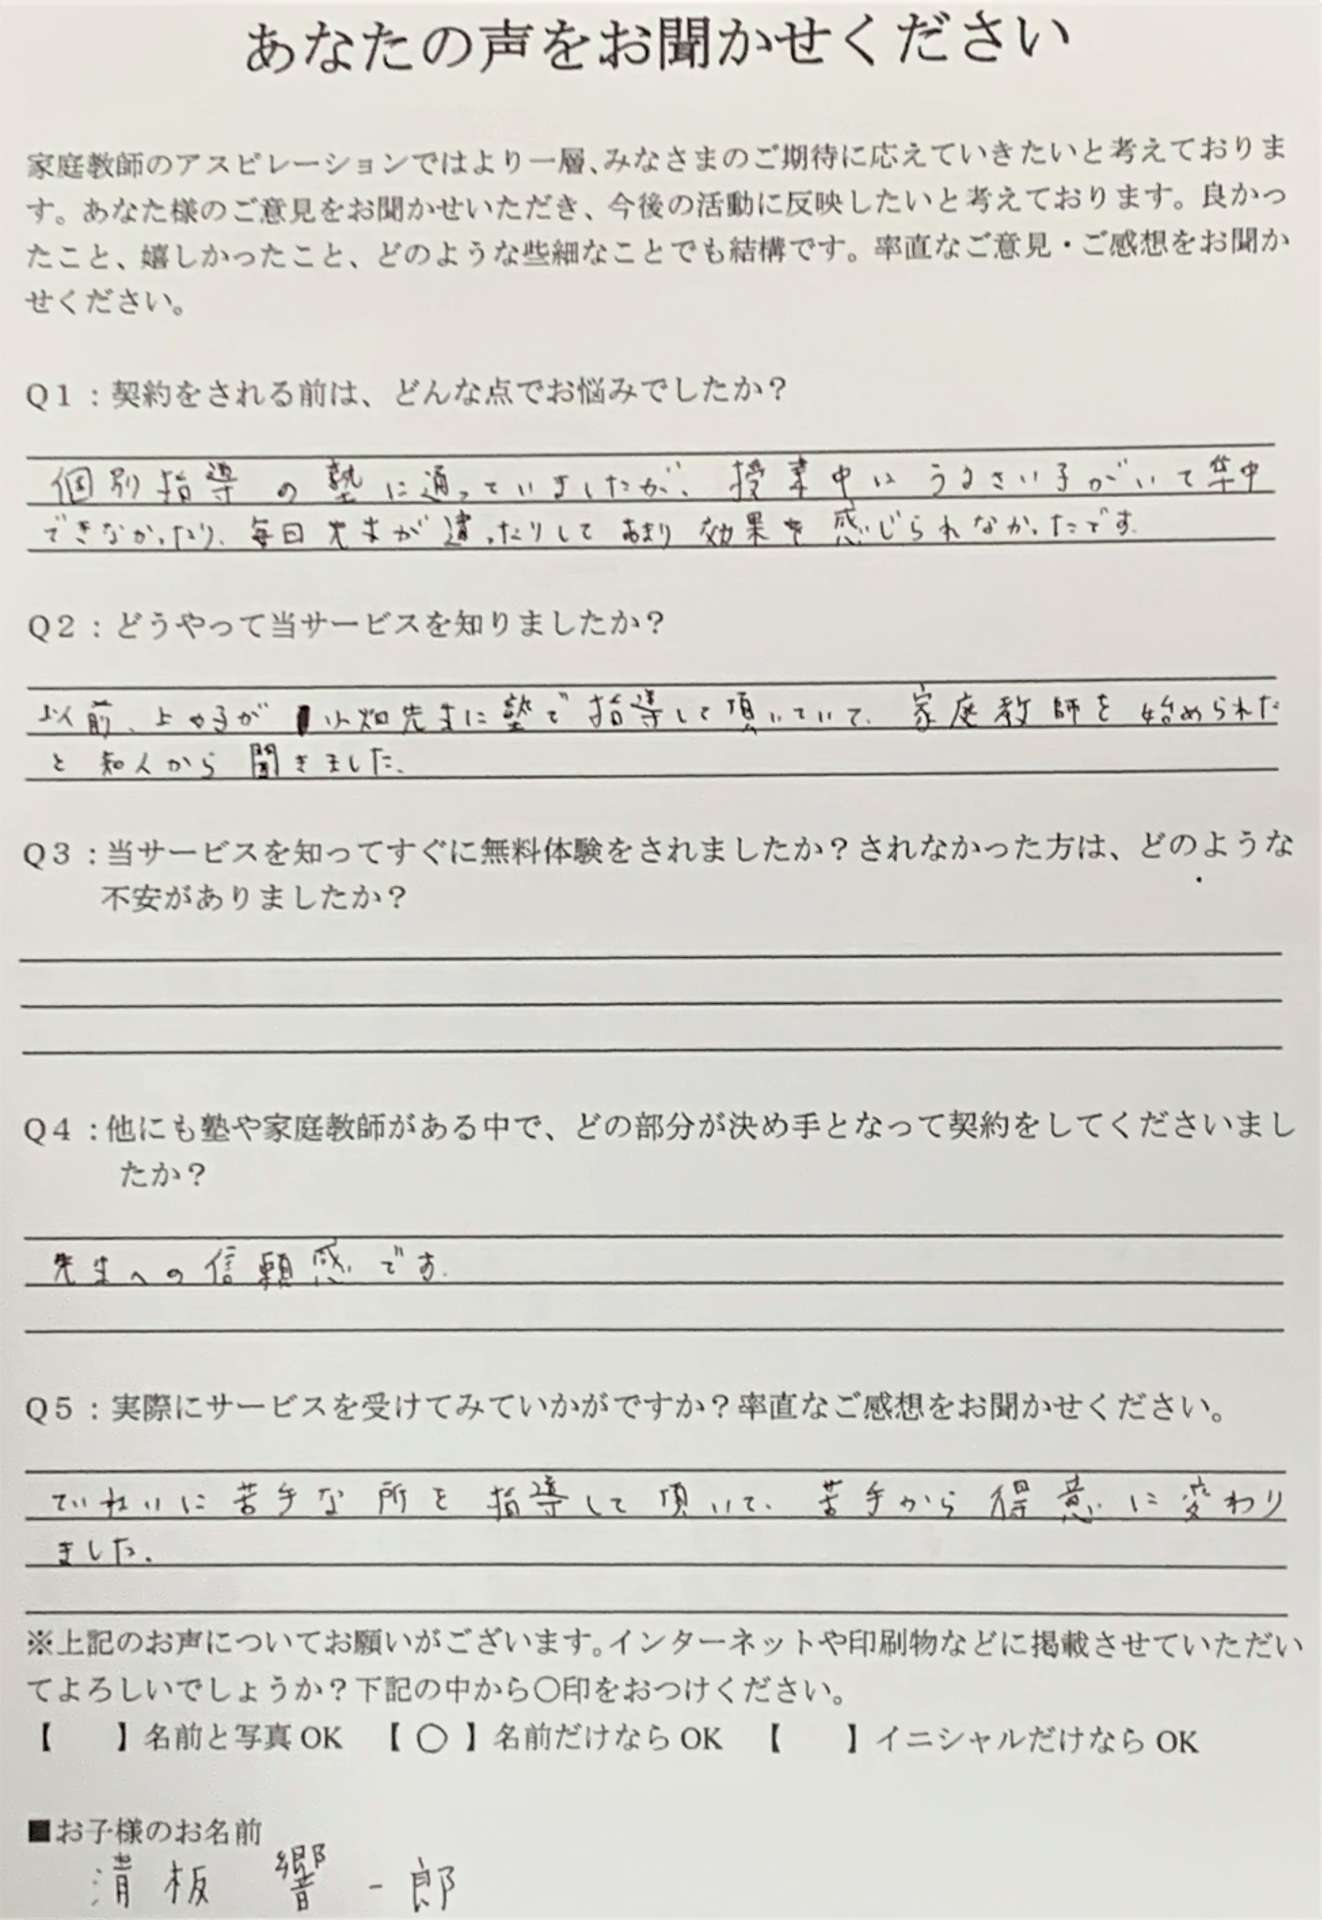 あなたの声をお聞かせください
家庭教師のアスピレーションではより一層、みなさまのご期待に応えていきたいと考えておりま
す。あなた様のご意見をお聞かせいただき、今後の活動に反映したいと考えております。良かっ
たこと、嬉しかったこと、どのような些細なことでも結構です。率直なご意見・ご感想をお聞か
せください。
Q1：契約をされる前は、どんな点でお悩みでしたか？
個別指導の塾に通っていましたが、授業中にうるさい子がいて集中
できなかったり、毎回先生が違ったりしてあまり効果を感じられなかったです。
Q2：どうやって当サービスを知りましたか？
以前、上の子が小畑先生に塾で指導して頂いていて、家庭教師を始められた
と知人から聞きました。
Q3：当サービスを知ってすぐに無料体験をされましたか？されなかった方は、どのような
不安がありましたか？
Q4：他にも塾や家庭教師がある中で、どの部分が決め手となって契約をしてくださいまし
たか？
先生への信頼感です。
Q5：実際にサービスを受けてみていかがですか？率直なご感想をお聞かせください。
ていねいに苦手な所を指導して頂いて、苦手から得意に変わり
ました。
※上記のお声についてお願いがございます。インターネットや印刷物などに掲載させていただい
てよろしいでしょうか？下記の中から〇印をおつけください。
【　　】名前と写真OK　【 〇 】名前だけならOK　【　　】イニシャルだけならOK
■お子様のお名前
清板 響一郎